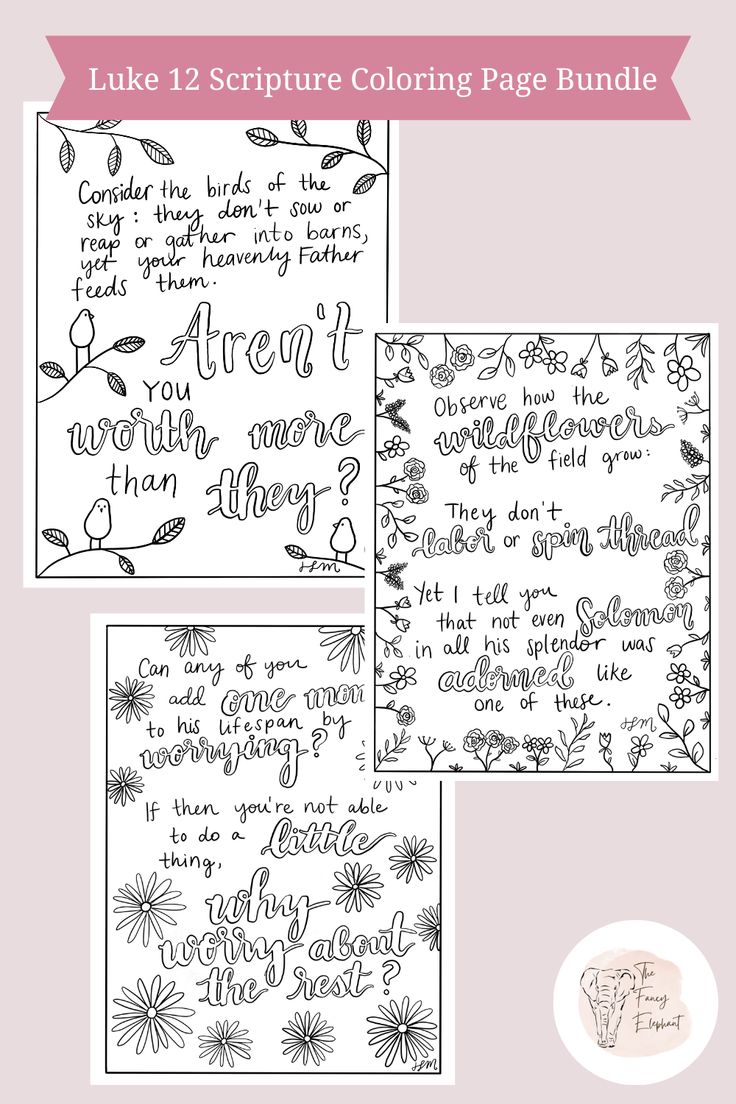 Luke 12 Scripture Coloring Page Bundle
Consider the birds of the
sky: they don't sow or
reap or gather into barns,
yet your heavenly Father
feeds them.
Aren't
YOU
worth more
than they?
HM
Observe how the
wildflowers
of the field grow:
They don't
labor or spin thread
Yet I tell you
that not even Solomon
in all his splendor was
adorned like
one of these.
HM
Can any of you
add one mom
to his lifespan by
worrying?
If then you're not able
to do a little
thing,
why
worry about
the rest?
HM
The
Fancy
Elephant